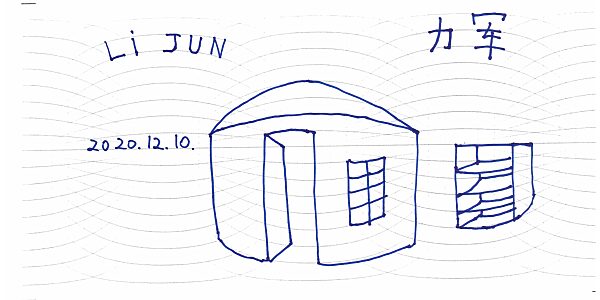 Li JUN
力军
2020.12.10.